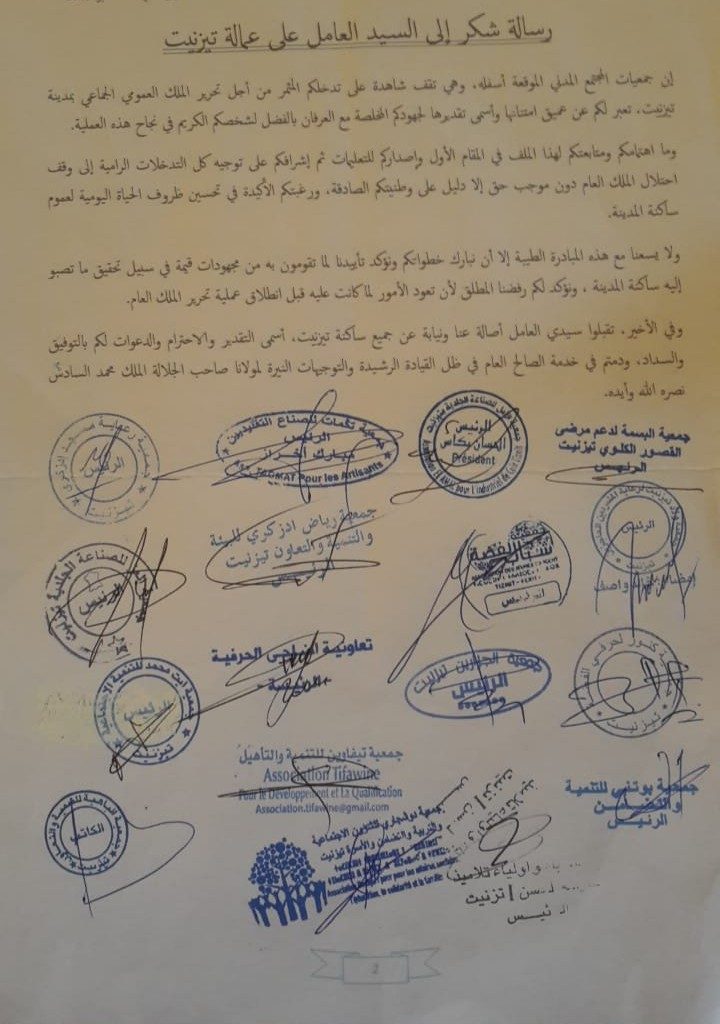 رسالة شكر إلى السيد العامل على عمالة تيزنيت
إن جمعيات المجتمع المدني الموقعة أسفله، وهي تقف شاهدة على تدخلكم المثمر من أجل تحرير الملك العمومي الجماعي بمدينة
تيزنيت، تعبر لكم عن عميق امتنانها وأسمى تقديرها لجهودكم المخلصة مع العرفان بالفضل لشخصكم الكريم في نجاح هذه العملية.
وما اهتمامكم ومتابعتكم لهذا الملف في المقام الأول وإصداركم للتعليمات ثم إشرافكم على توجيه كل التدخلات الرامية إلى وقف
احتلال الملك العام دون موجب حق إلا دليل على وطنيتكم الصادقة، ورغبتكم الأكيدة في تحسين ظروف الحياة اليومية لعموم
ساكنة المدينة.
ولا يسعنا مع هذه المبادرة الطيبة إلا أن نبارك خطواتكم ونؤكد تأييدنا لما تقومون به من مجهودات قيمة في سبيل تحقيق ما تصبو
إليه ساكنة المدينة ، ونؤكد لكم رفضنا المطلق لأن تعود الأمور لما كانت عليه قبل انطلاق عملية تحرير الملك العام.
وفي الأخير، تقبلوا سيدي العامل أصالة عنا ونيابة عن جميع ساكنة تيزنيت، أسمى التقدير والاحترام والدعوات لكم بالتوفيق
والسداد، ودمتم في خدمة الصالح العام في ظل القيادة الرشيدة والتوجيهات النيرة لمولانا صاحب الجلالة الملك محمد السادس
نصره الله وأيده.
جمعية البسمة لدعم مرضى
القصور الكلوي تيزنيت
الرئيس
الرئيس
Président
الرئيس
مبارك
Pour les Artisants
الرئيس
تيزنيت
الرئيس
تيزنيت
جمعية رياض ادزكري للبيئة
والتنمية والتعاون تيزنيت
للصناعة الجلدية
الرئيس
تعاونية الحرفية
جمعية تيزنيت
الرئيس
تيزنيت
جمعية ايت محمد للتنمية الاجتماعية
الرئيس
تيزنيت
جمعية تيفاوين للتنمية والتأهيل
Association Tifawine
Pour le Developpement et La Qualification
Association.tifawine@gmail.com
جمعية بوتني للتنمية
والتضامن
الرئيس
الكاتب
الاجتماعية
والتربية والتضامن والأسرة تيزنيت
واولياء تلاميذ
تزنيت
2